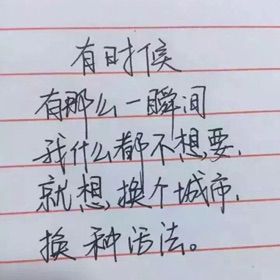 有时候
有那么一瞬间
我什么都不想要,
就想,换个城市,
换种活法。